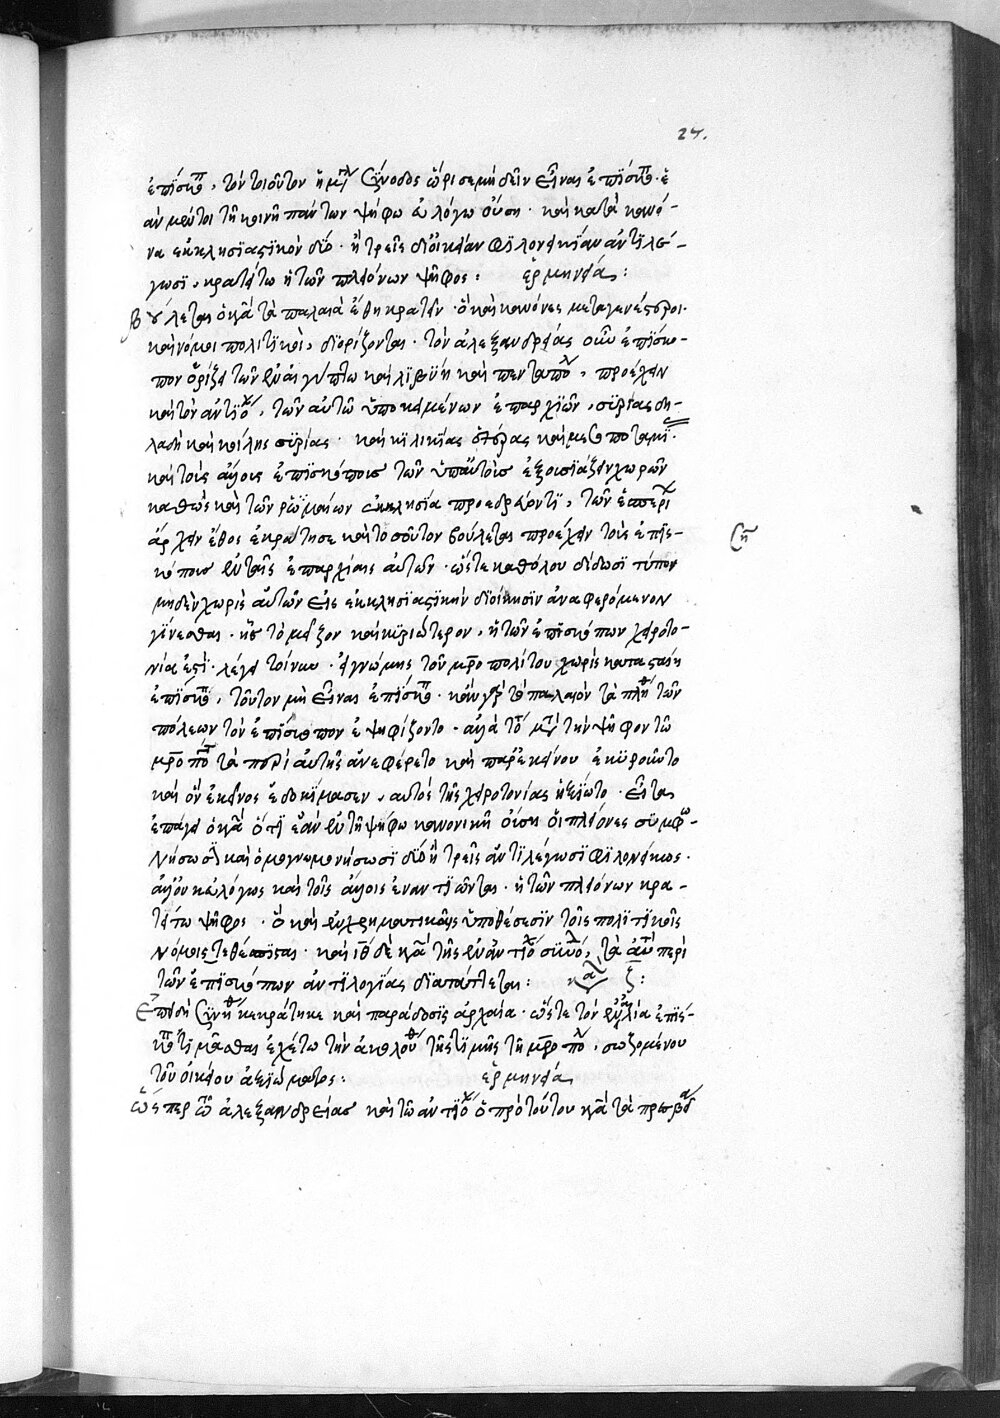 27.
ἐπίσκοπ, τὸν τοιοῦτον ἡ μεγάλη σύνοδος ὥρισε μὴ δεῖν εἶναι ἐπίσκοπ. ἐ
ὰν μέντοι τῇ κοινῇ πάντων ψήφω εὐλόγω οὔση. καὶ κατὰ κανό-
να ἐκκλησιαστικὸν δύο ἢ τρεῖς δι' οἰκείαν φιλονεικίαν ἀντιλέ-
γωσι, κρατείτω ἡ τῶν πλειόνων ψῆφος: ἑρμηνεία:
Βούλεται ὁ κα τὰ παλαιὰ ἔθη κρατεῖν. ὃ καὶ κανόνες μεταγενέστεροι.
καὶ νόμοι πολιτικοὶ, διορίζονται. τὸν ἀλεξανδρείας οὖν ἐπίσκο-
πον ὁρίζει τῶν ἐν αἰγύπτω καὶ λιβύη καὶ πενταπολ, προέχειν
καὶ τὸν ἀντιοχ, τῶν αὐτῶ ὑποκειμένων ἐπαρχιῶν, συρίας δη-
λαδὴ καὶ κοίλης συρίας. καὶ κιλικίας ἑτέρας καὶ μεσοποταμί.
καὶ τοῖς ἄλλοις ἐπισκόποις τῶν ὑπ' αὐτοῖς ἐξουσιάζειν χωρῶν
καθὼς καὶ τῶν ῥωμαίων ἐκκλησία προεδρεύοντι, τῶν ἑσπερί
ἄρχειν ἔθος ἐκράτησε καὶ τοσοῦτον βούλεται προέχειν τοὺς ἐπισ- ση
κόπους ἐν ταῖς ἐπαρχίαις αὐτῶν. ὥστε καθόλου δίδωσι τύπον
μηδὲν χωρὶς αὐτῶν εἰς ἐκκλησιαστικὴν διοίκησιν ἀναφερόμενον
γίνεσθαι. ἧς τὸ μεῖζον καὶ κυριώτερον, ἡ τῶν ἐπισκόπων χειροτο-
νία ἐστί. λέγει τοίνυν. εἰ γνώμης τοῦ μρο πολίτου χωρὶς καταστάιη
ἐπίσκοπ, τοῦτον μὴ εἶναι ἐπίσκοπ. κἂν γὰρ τὸ παλαιὸν τὰ πλήθ τῶν
πόλεων τὸν ἐπίσκοπον ἐψηφίζοντο. ἀλλὰ τότ μετ τὴν ψῆφον τῶ
μρο ποτ τὰ περὶ αὐτῆς ἀνεφέρετο καὶ παρ' ἐκείνου ἐκυροῦντο
καὶ ὃν ἐκεῖνος ἐδοκίμασεν, αὐτὸς τῆς χειροτονίας ἠξιῶτο. εἶτα
ἐπάγει ὁ κα ὅτι ἐὰν ἐν τῆ ψήφω κανονικῆ οὔση οἱ πλείονες συμφω-
νήσωσι καὶ ὁμογνωμονήσωσι δύο ἢ τρεῖς ἀντιλέγωσι φιλονείκως.
ἀλλ' οὐκ εὐλόγως καὶ τοῖς ἄλλοις ἐναντιῶνται. ἡ τῶν πλειόνων κρα-
τείτω ψῆφος. ὃ καὶ ἐν χρηματικαῖς ὑποθέσεσιν τοῖς πολιτικοῖς
νόμοις τεθέσπισται. καὶ ιθ δὲ κα τῆς ἐν ἀντιοχ συνόδ, τὰ αὐτ περὶ
τῶν ἐπισκόπων ἀντιλογίας διατάττεται: κα ζ:
Ἐπειδὴ συνήθ κεκράτηκε καὶ παράδοσις ἀρχαία. ὥστε τὸν ἐν αἰλία ἐπίσ-
κοπ τιμᾶσθαι ἐχέτω τὴν ἀκολουθ τῆς τιμῆς τῆ μρο πολ, σωζομένου
τοῦ οἰκείου ἀξιώματος: ἑρμηνεία
Ὥσπερ τῶ ἀλεξανδρείας καὶ τῶ ἀντιοχ ὁ πρὸ τούτου κα τὰ πρεσβεῖ